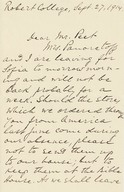 Robert College, Sept 27, 1914
Dear Mr. Peet
Mrs. Panaretoff
and I are leaving for
Sofia to-morrow mor-
ning and will not be
back probably for a
week. Should the stove
which we ordered through
you from America
last June come during
our absence please
not to send them up
to our house, but to
keep them at the Bible
House. We shall leave